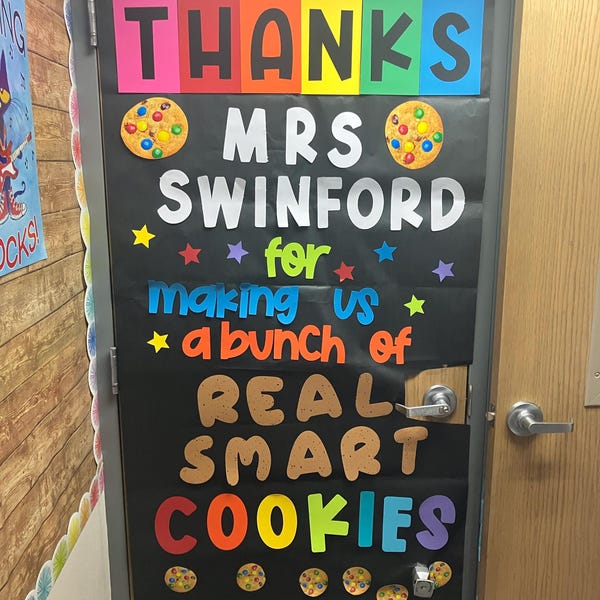 THANKS
MRS
SWINFORD
for
making us
a bunch of
REAL
SMART
COOKIES